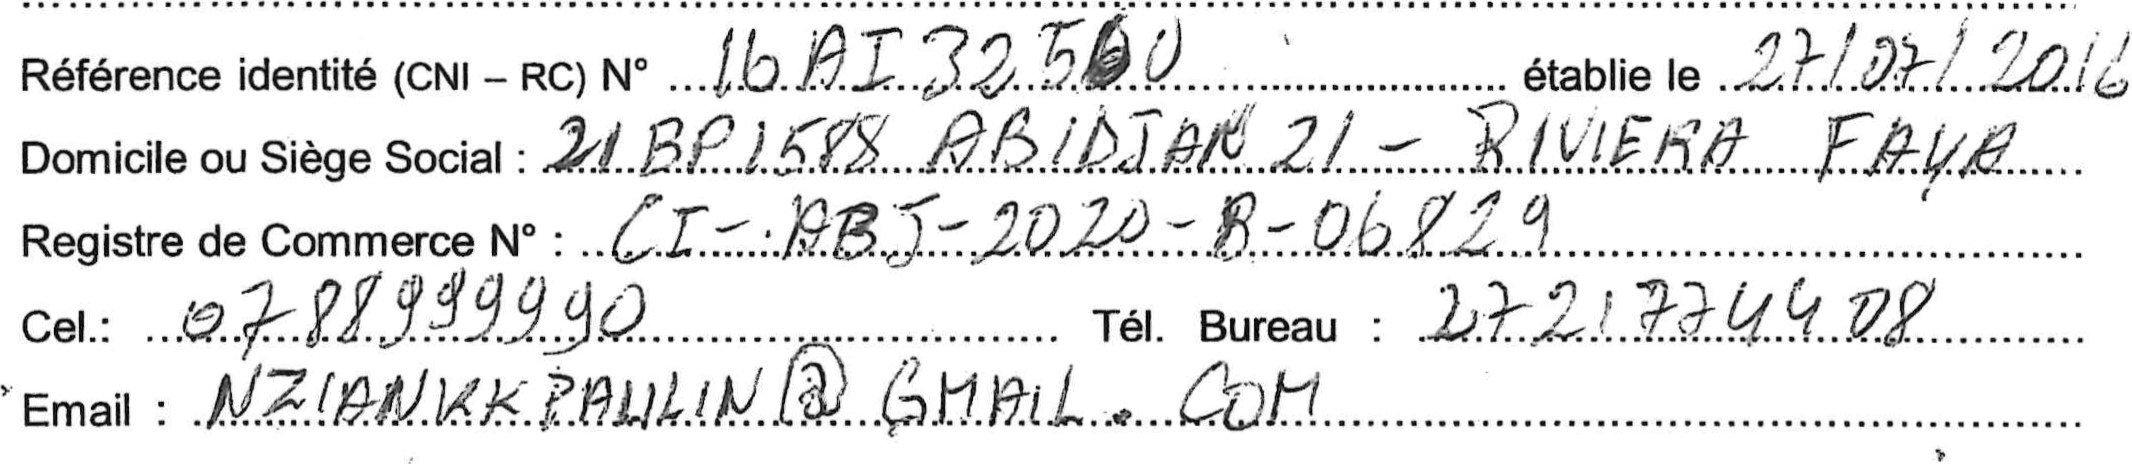 Référence identité (CNI – RC) N° 16 AI 32560 établie le 27/07/2016
Domicile ou Siège Social : 21 BP 1588 ABIDJAN 21 - RIVIERA FAYA
Registre de Commerce N° : CI-ABJ-2020-B-06829
Cel.: 0788999990 Tél. Bureau : 2721774408
Email : NZIANKKPAULIN@GMAIL.COM